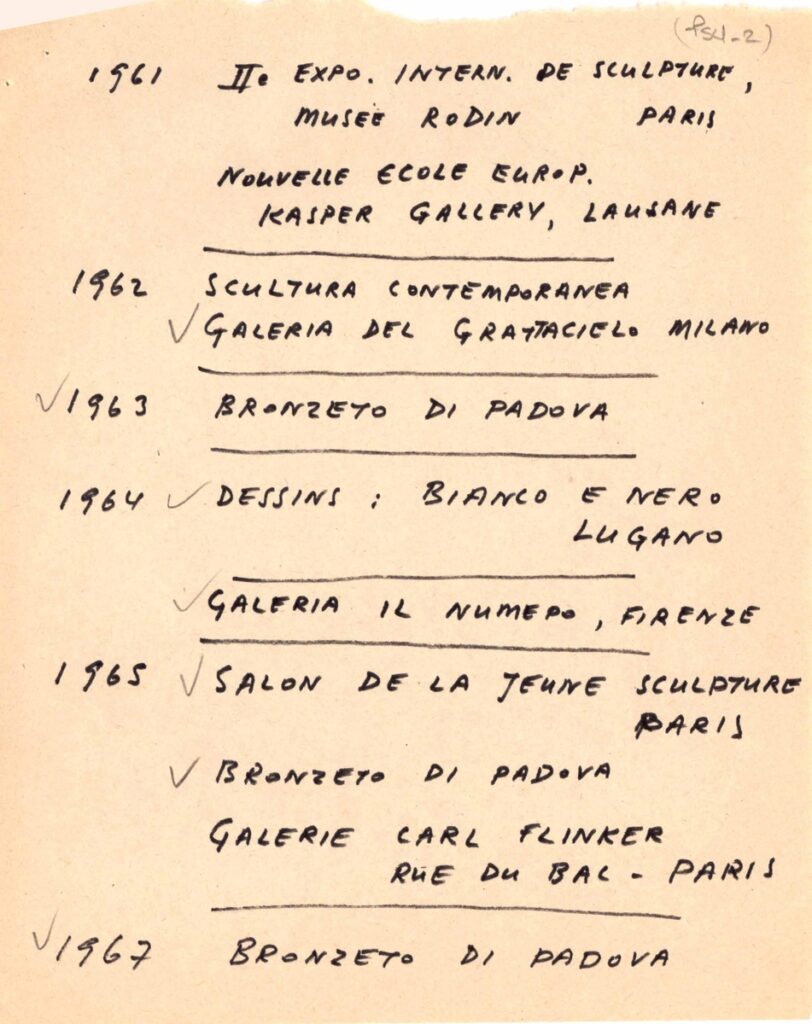 1961 IIe EXPO. INTERN. DE SCULPTURE,
MUSEE RODIN PARIS
NOUVELLE ECOLE EUROP.
KASPER GALLERY, LAUSANE
1962 SCULTURA CONTEMPORANEA
GALERIA DEL GRATTACIELO MILANO
1963 BRONZETO DI PADOVA
1964 DESSINS : BIANCO E NERO
LUGANO
GALERIA IL NUMERO, FIRENZE
1965 SALON DE LA JEUNE SCULPTURE
PARIS
BRONZETO DI PADOVA
GALERIE CARL FLINKER
RUE DU BAC - PARIS
1967 BRONZETO DI PADOVA